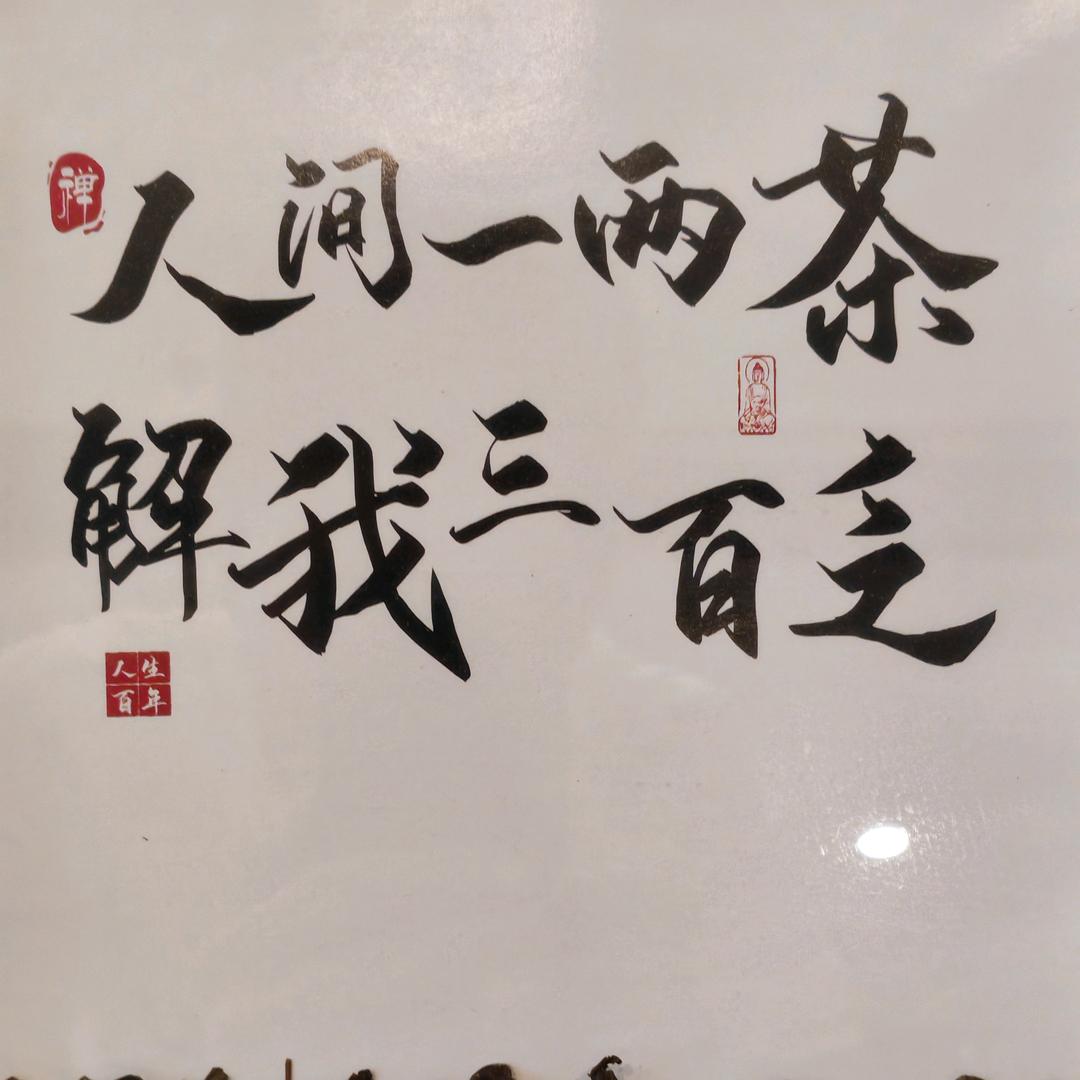 禅
人间一两茶
解我三百乏
人生
百年